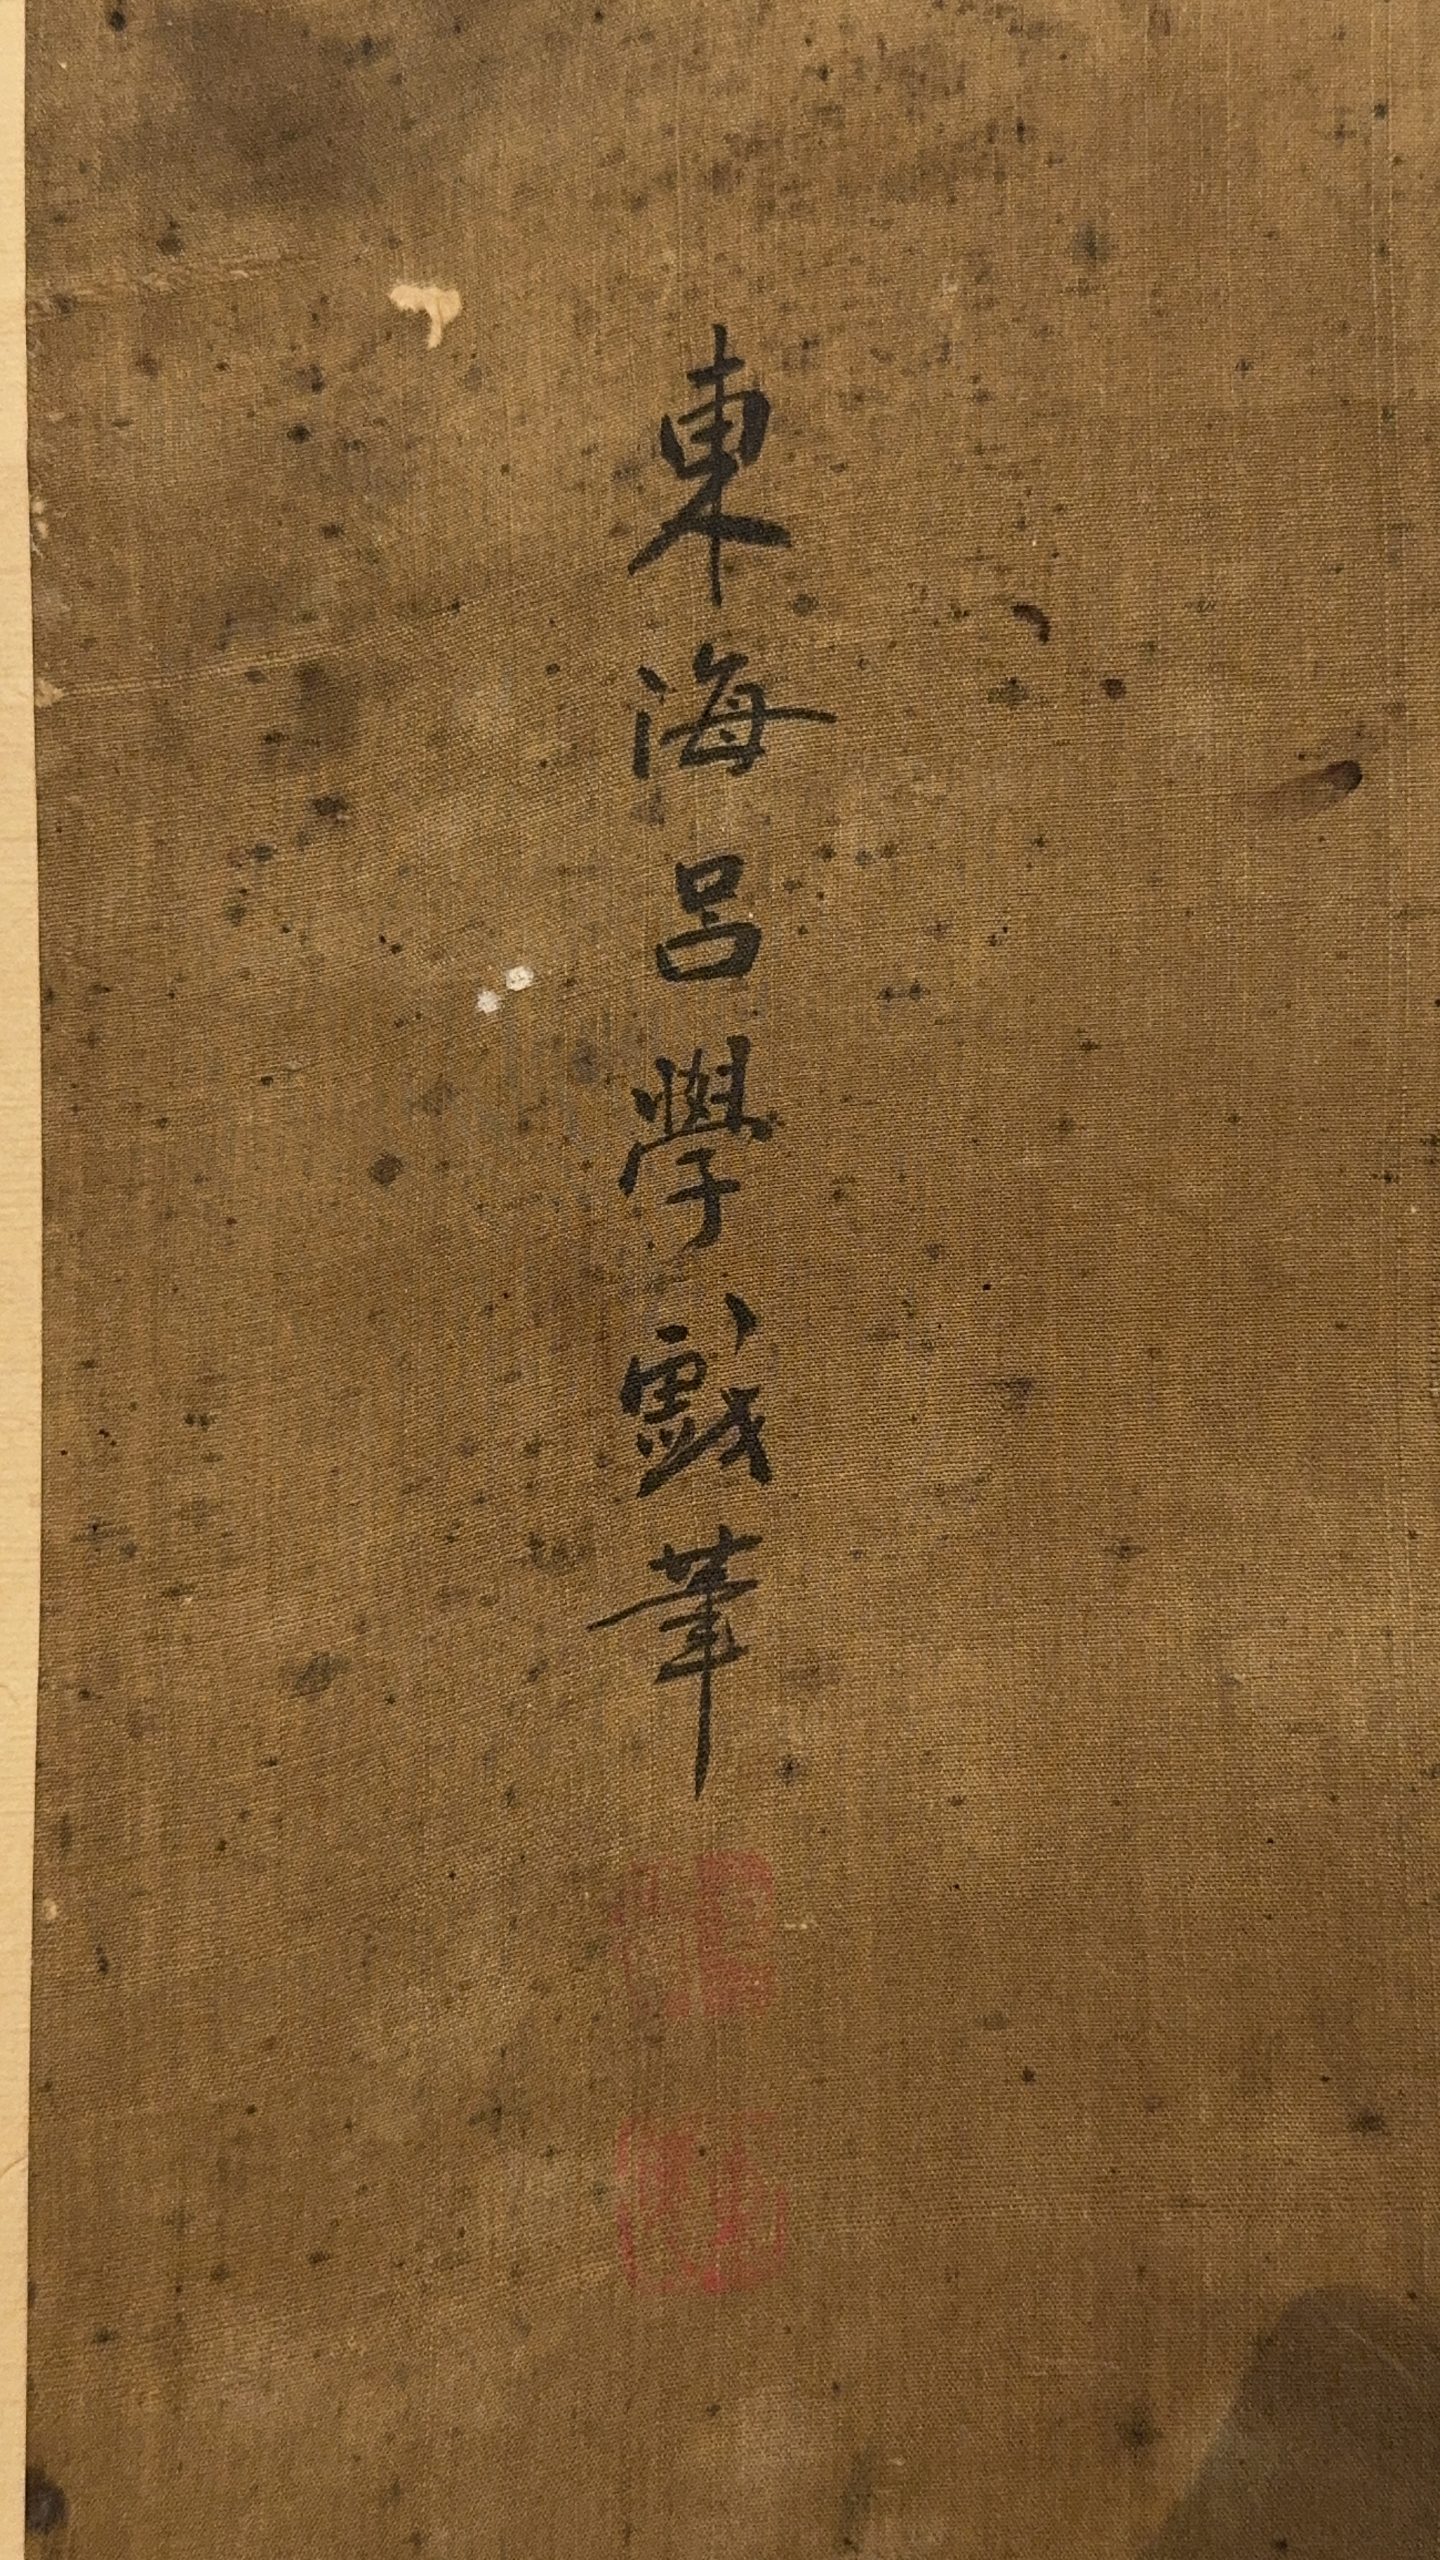 東海呂學戲筆